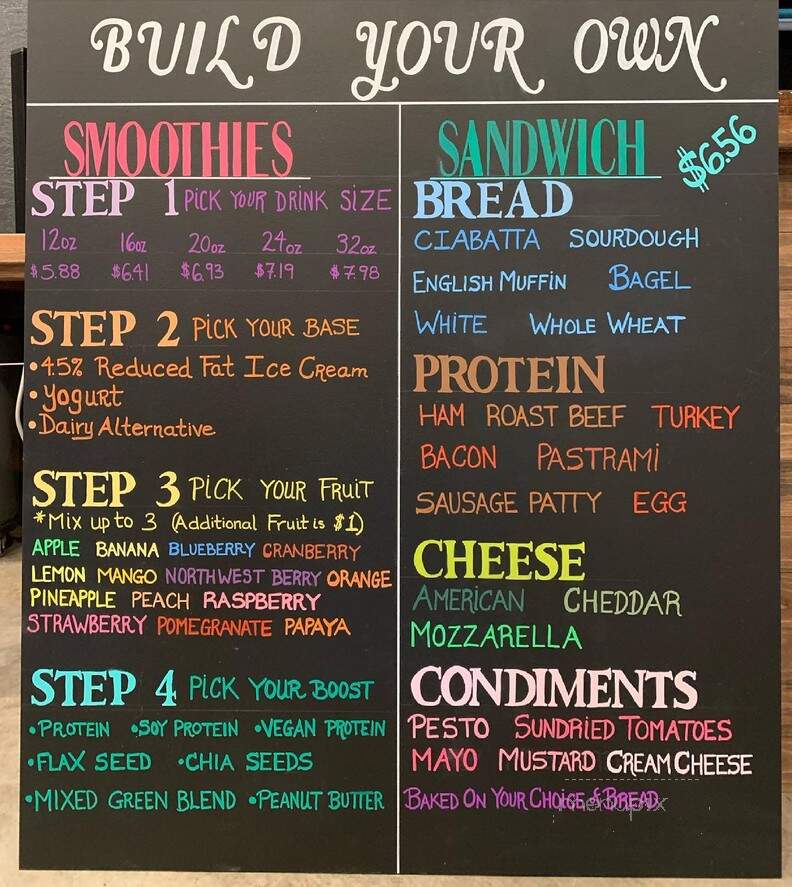 BUILD YOUR OWN
SMOOTHIES
STEP 1 PICK YOUR DRINK SIZE
12oz 16oz 20oz 24oz 32oz
$5.88 $6.41 $6.93 $7.19 $7.98
STEP 2 PICK YOUR BASE
•45% Reduced Fat Ice Cream
•Yogurt
•Dairy Alternative
STEP 3 PICK YOUR FRUIT
*Mix up to 3 (Additional Fruit is $1)
APPLE BANANA BLUEBERRY CRANBERRY
LEMON MANGO NORTHWEST BERRY ORANGE
PINEAPPLE PEACH RASPBERRY
STRAWBERRY POMEGRANATE PAPAYA
STEP 4 PICK YOUR BOOST
•PROTEIN •SOY PROTEIN •VEGAN PROTEIN
•FLAX SEED •CHIA SEEDS
•MIXED GREEN BLEND •PEANUT BUTTER
SANDWICH $6.56
BREAD
CIABATTA SOURDOUGH
ENGLISH MUFFIN BAGEL
WHITE WHOLE WHEAT
PROTEIN
HAM ROAST BEEF TURKEY
BACON PASTRAMI
SAUSAGE PATTY EGG
CHEESE
AMERICAN CHEDDAR
MOZZARELLA
CONDIMENTS
PESTO SUNDRIED TOMATOES
MAYO MUSTARD CREAM CHEESE
BAKED ON YOUR CHOICE of BREAD
menupix